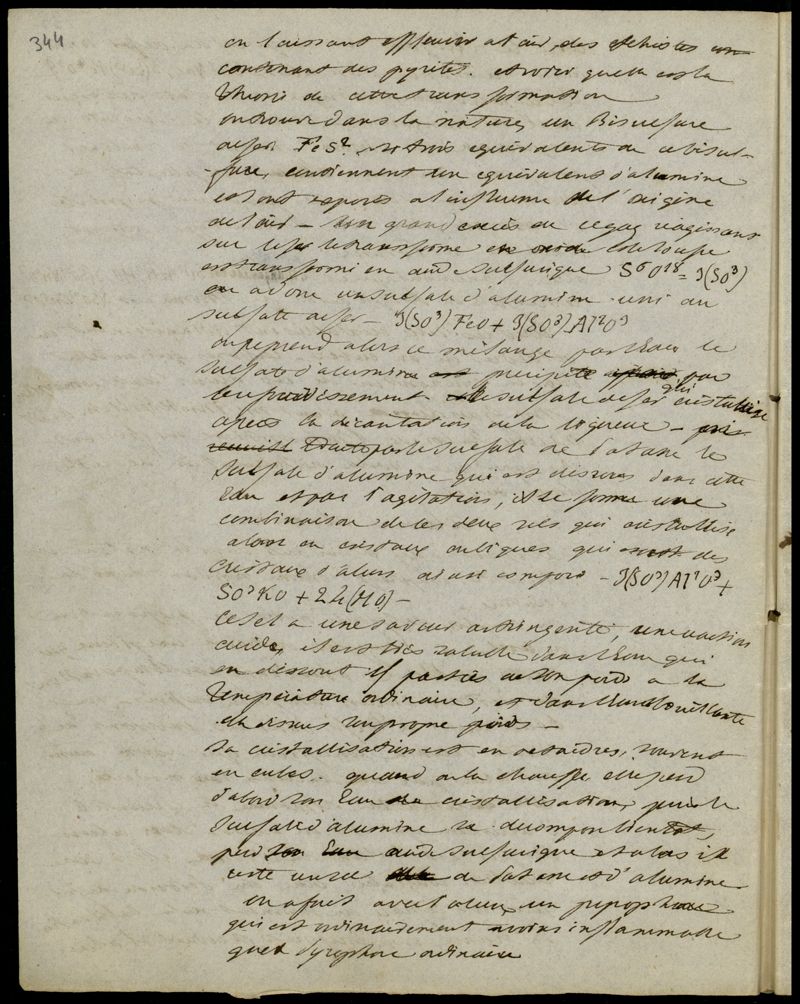 344
en laissant effleurir a l'air, des schistes
contenant des pyrites. et voici quelle est la
theorie de cette transformation
on trouve dans la nature, un Bisulfure
de fer FeS². trois equivalents de ce bisul-
-fure, contiennent un equivalent d'alumine
et sont exposés a l'influence de l'oxigène
de l'air — un grand excès de ce gaz réagissant
sur le fer le transforme en oxide et le soufre
est transformé en acide sulfurique S⁶O¹⁸ = 3(SO³)
on a donc un sulfate d'alumine uni au
sulfate de fer — 3(SO³)FeO + 3(SO³)Al²O³
on reprend alors ce mélange par l'eau le
sulfate d'alumine précipite par
le refroidissement le sulfate de fer qui cristallise
après la décantation de la liqueur —
par le sulfate de potasse le
sulfate d'alumine qui est dissous dans cette
eau et par l'agitation, il se forme une
combinaison de les deux sels qui cristallise
alors en cristaux cubiques qui sont des
cristaux d'alun ainsi composé — 3(SO³)Al²O³ +
SO³KO + 24(HO) —
ce sel a une saveur astringente, une réaction
acide, il est très soluble dans l'eau qui
en dissout parties de son poids a la
température ordinaire, et dans l'eau bouillante
propre poids —
sa cristallisation est en octaèdres, souvent
en cubes. quand on la chauffe elle perd
d'abord son eau de cristallisation, puis le
sulfate d'alumine se decomposant
perd acide sulfurique et alors il
reste un sel de potasse et d'alumine
on a fait avec l'alun, un pyrophore
qui est ordinairement moins inflammable
que le pyrophore ordinaire